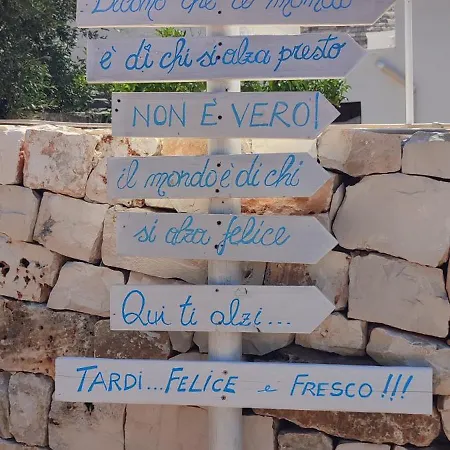 Dicono che il mondo
è di chi si alza presto
NON È VERO!
il mondo è di chi
si alza felice
Qui ti alzi...
TARDI...FELICE e FRESCO!!!